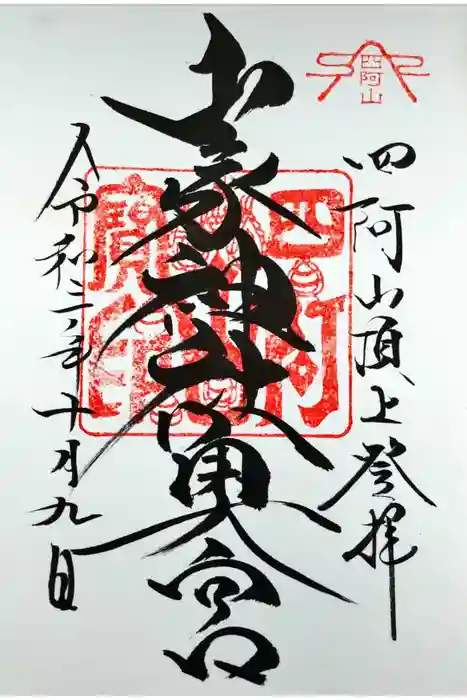 四阿山
四阿山頂上登拝
山家神社奥宮
令和三年十月九日
四阿
寶